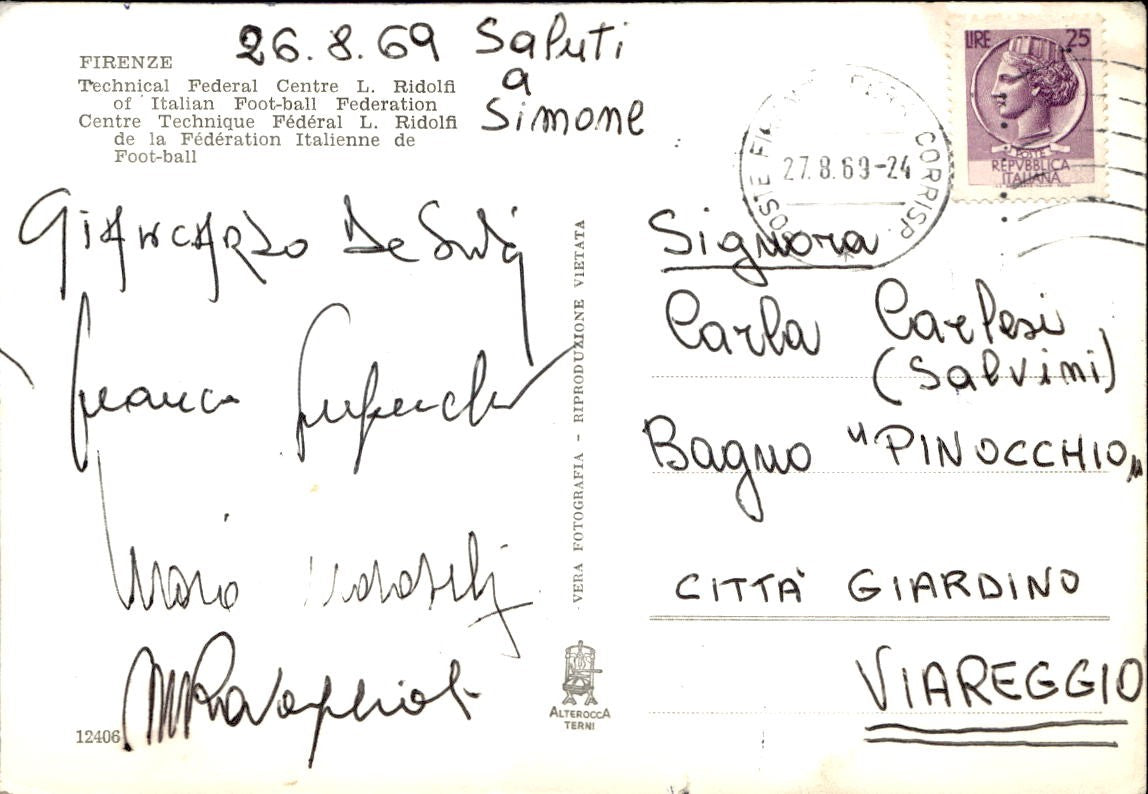 26.8.69 Saluti
a
Simone
FIRENZE
Technical Federal Centre L. Ridolfi
of Italian Foot-ball Federation
Centre Technique Fédéral L. Ridolfi
de la Fédération Italienne de
Foot-ball
LIRE 25
POSTE
REPVBBLICA
ITALIANA
POSTE CORRISP.
27.8.69-24
GIANCARLO De
Franco
Mario
VERA FOTOGRAFIA - RIPRODUZIONE VIETATA
Signora
Carla Carlesi
(Salvini)
Bagno "PINOCCHIO"
CITTÀ GIARDINO
VIAREGGIO
ALTEROCCA
TERNI
12406